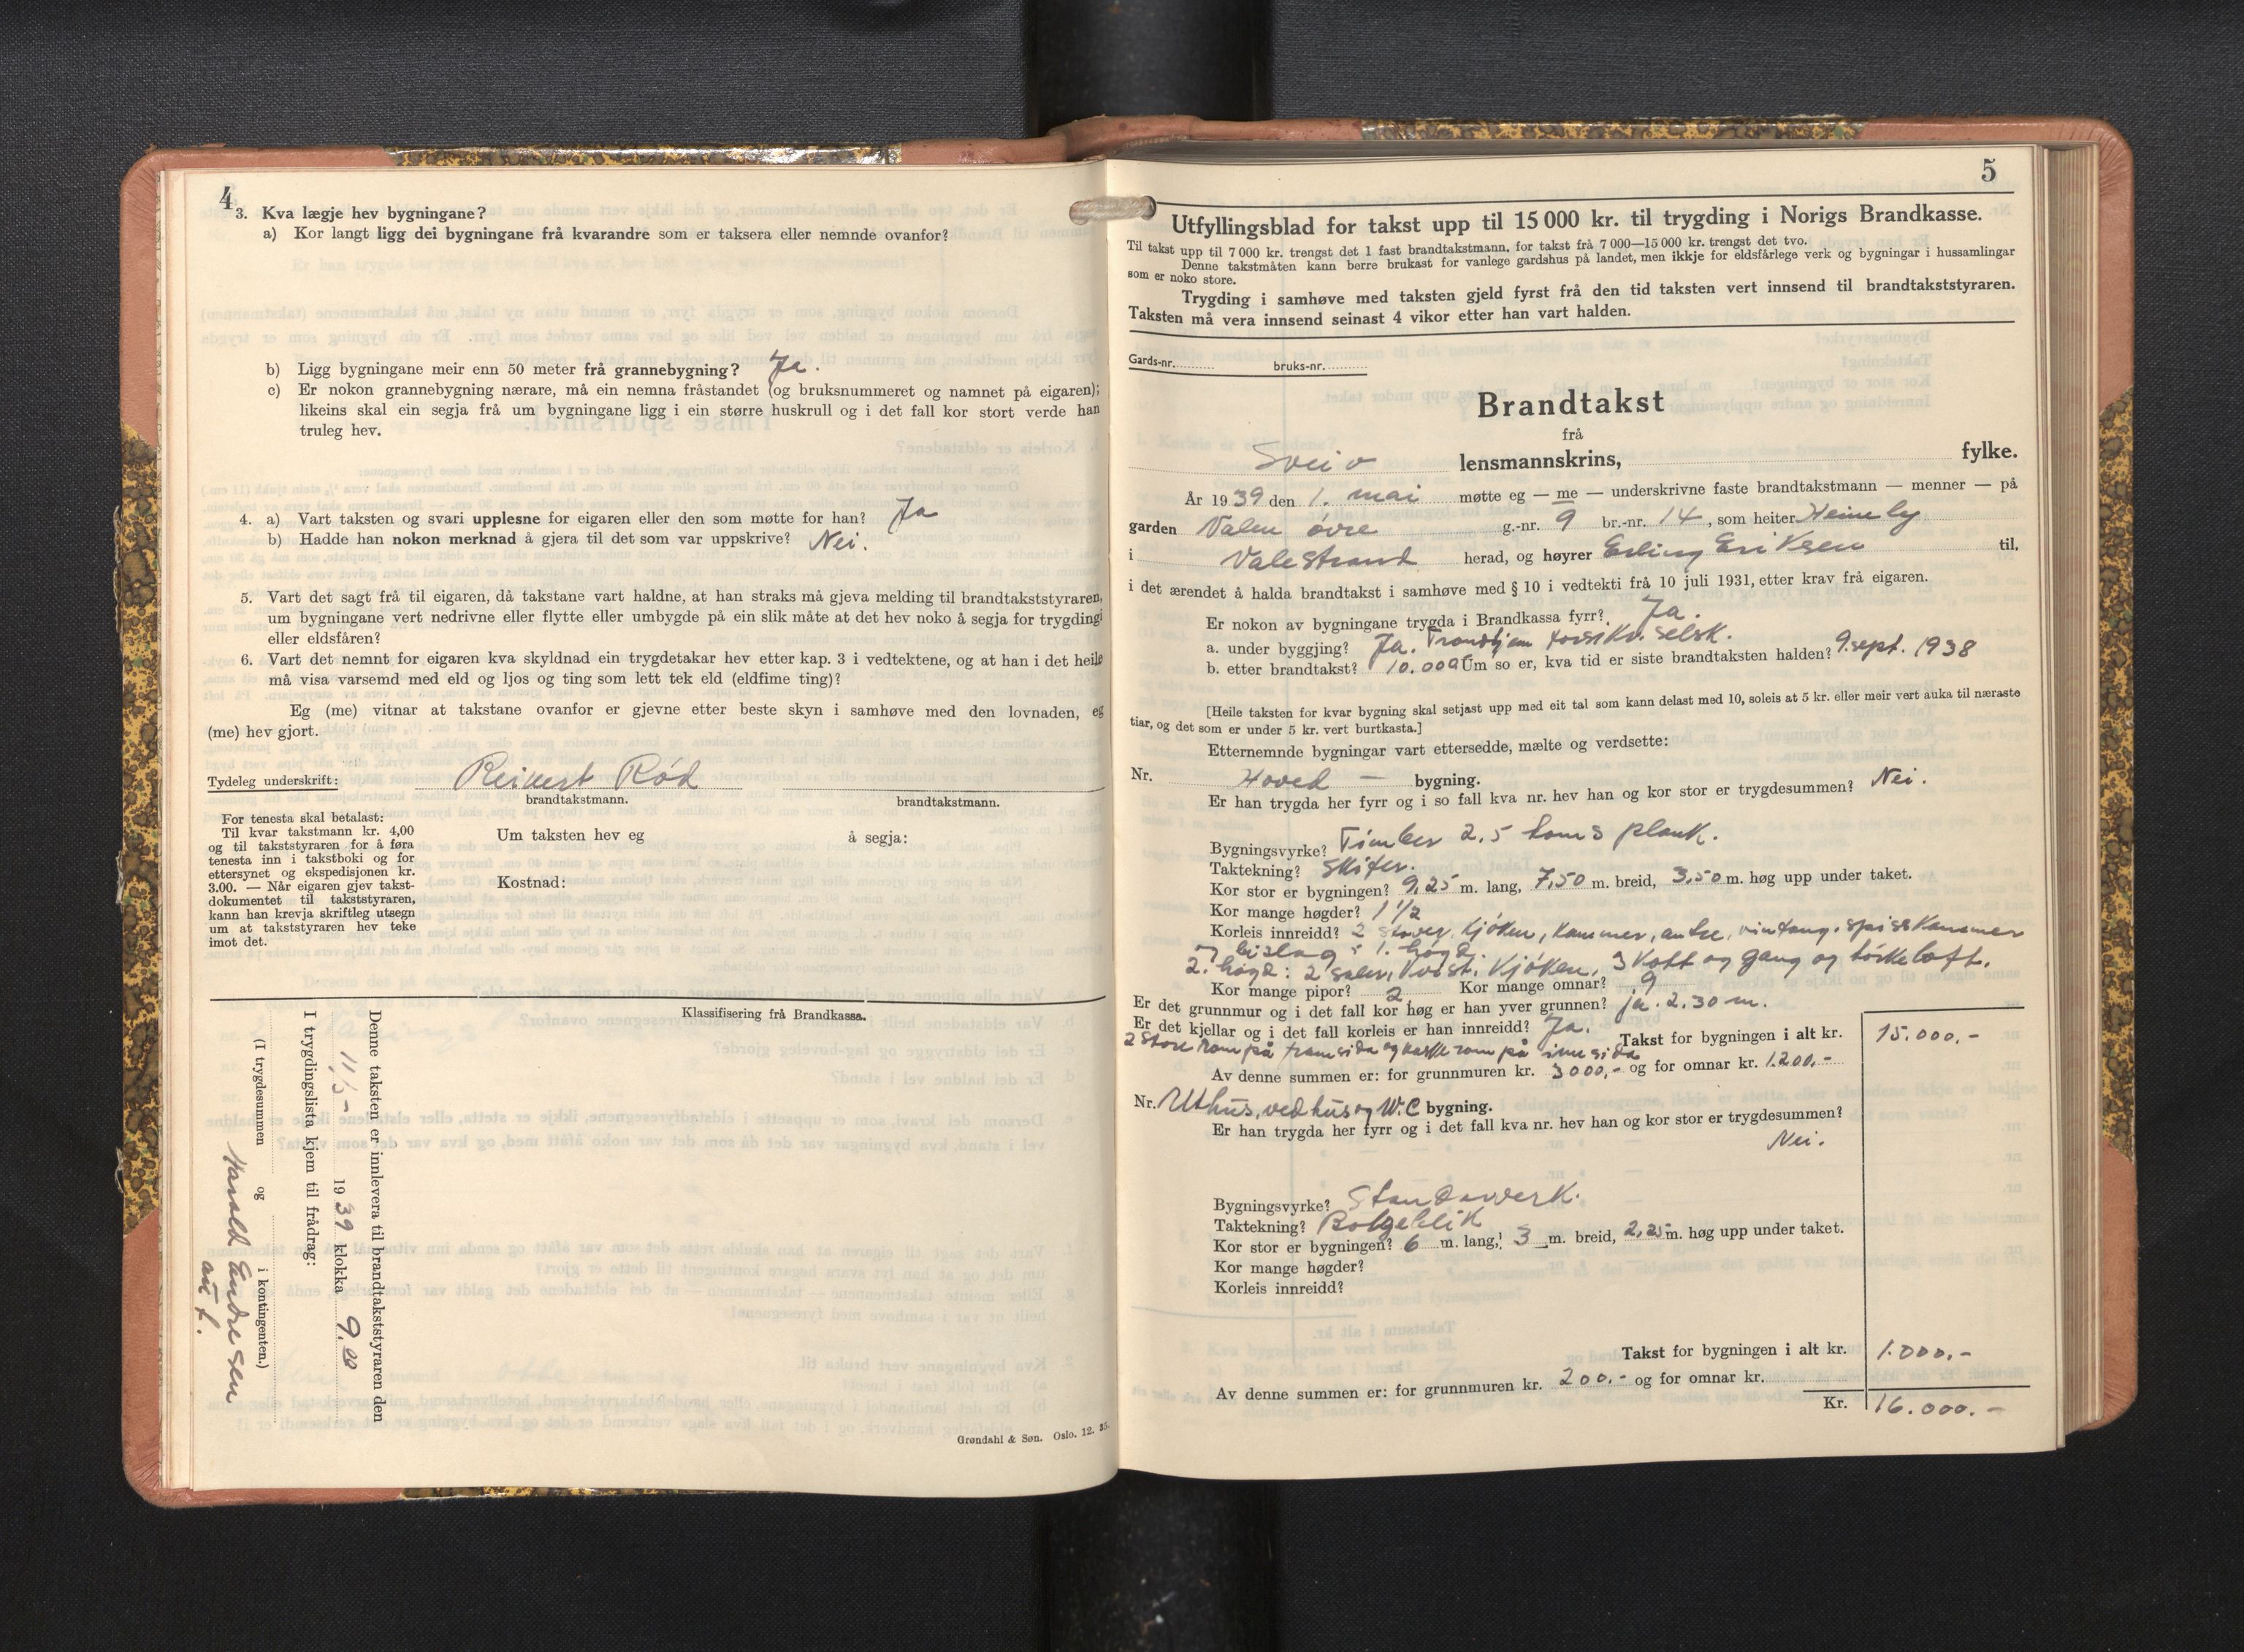 4
3. Kva lægje hev bygningane?
a) Kor langt ligg dei bygningane frå kvarandre som er taksera eller nemnde ovanfor?
b) Ligg bygningane meir enn 50 meter frå grannebygning? Ja.
c) Er nokon grannebygning nærare, må ein nemna fråstandet (og bruksnummeret og namnet på eigaren);
likeins skal ein segja frå um bygningane ligg i ein større huskrull og i det fall kor stort verde han
truleg hev.
4. a) Vart taksten og svari upplesne for eigaren eller den som møtte for han? Ja
b) Hadde han nokon merknad å gjera til det som var uppskrive? Nei.
5. Vart det sagt frå til eigaren, då takstane vart haldne, at han straks må gjeva melding til brandtakststyraren,
um bygningane vert nedrivne eller flytte eller umbygde på ein slik måte at det hev noko å segja for trygdingi
eller eldsfåren?
6. Vart det nemnt for eigaren kva skyldnad ein trygdetakar hev etter kap. 3 i vedtektene, og at han i det heile
må visa varsemd med eld og ljos og ting som lett tek eld (eldfime ting)?
Eg (me) vitnar at takstane ovanfor er gjevne etter beste skyn i samhøve med den lovnaden, eg
(me) hev gjort.
Tydeleg underskrift: Reinert Rød
brandtakstmann. brandtakstmann.
For tenesta skal betalast:
Til kvar takstmann kr. 4,00
og til takststyraren for å føra
tenesta inn i takstboki og for
ettersynet og ekspedisjonen kr.
3.00. — Når eigaren gjev takst-
dokumentet til takststyraren,
kann han krevja skriftleg utsegn
um at takststyraren hev teke
imot det.
Um taksten hev eg å segja:
Kostnad:
Klassifisering frå Brandkassa.
Denne taksten er innlevera til brandtakststyraren den
11/5- 1939 klokka 9.00
I trygdingslista kjem til frådrag:
(I trygdesummen og i kontingenten.)
Harald Endresen
aut.
Grøndahl & Søn. Oslo. 12. 35.
5
Utfyllingsblad for takst upp til 15 000 kr. til trygding i Norigs Brandkasse.
Til takst upp til 7 000 kr. trengst det 1 fast brandtakstmann, for takst frå 7 000—15 000 kr. trengst det tvo.
Denne takstmåten kann berre brukast for vanlege gardshus på landet, men ikkje for eldsfårlege verk og bygningar i hussamlingar
som er noko store.
Trygding i samhøve med taksten gjeld fyrst frå den tid taksten vert innsend til brandtakststyraren.
Taksten må vera innsend seinast 4 vikor etter han vart halden.
Gards-nr. bruks-nr.
Brandtakst
frå
Sveio lensmannskrins, fylke.
År 1939 den 1. mai møtte eg — me — underskrivne faste brandtakstmann — menner — på
garden Valen øvre g.-nr. 9 br.-nr. 14, som heiter Heimeby
i Valestrand herad, og høyrer Erling Eriksen til,
i det ærendet å halda brandtakst i samhøve med § 10 i vedtekti frå 10 juli 1931, etter krav frå eigaren.
Er nokon av bygningane trygda i Brandkassa fyrr? Ja.
a. under byggjing? Ja. Trondhjem forsikr. selsk.
b. etter brandtakst? 10.000 Um so er, kva tid er siste brandtaksten halden? 9. sept. 1938
[Heile taksten for kvar bygning skal setjast upp med eit tal som kann delast med 10, soleis at 5 kr. eller meir vert auka til næraste
tiar, og det som er under 5 kr. vert burtkasta.]
Etternemnde bygningar vart ettersedde, mælte og verdsette:
Nr. Hoved — bygning.
Er han trygda her fyrr og i so fall kva nr. hev han og kor stor er trygdesummen? Nei.
Bygningsvyrke? Timber 2,5 toms plank.
Taktekning? Skifer.
Kor stor er bygningen? 9,25 m. lang, 7,50 m. breid, 3,50 m. høg upp under taket.
Kor mange høgder? 1 1/2
Korleis innreidd? 2 stover, kjøken, kammer, antre, vintang. spisskammer
og bislag i 1. høgd.
2. høgd: 2 saler, kjøken, 3 kott og gang og tørkeloft.
Kor mange pipor? 2 Kor mange omnar? 9
Er det grunnmur og i det fall kor høg er han yver grunnen? ja. 2.30 m.
Er det kjellar og i det fall korleis er han innreidd? Ja.
2 store rom på framsida og kaske rom på inne sida
Takst for bygningen i alt kr. 15.000,-
Av denne summen er: for grunnmuren kr. 3000,- og for omnar kr. 1.200,-
Nr. Uthus, vedhus og W.C bygning.
Er han trygda her fyrr og i det fall kva nr. hev han og kor stor er trygdesummen?
Nei.
Bygningsvyrke? Standaverk.
Taktekning? Bølgeblik
Kor stor er bygningen? 6 m. lang, 3 m. breid, 2,25 m. høg upp under taket.
Kor mange høgder?
Korleis innreidd?
Takst for bygningen i alt kr. 1.000,-
Av denne summen er: for grunnmuren kr. 200,- og for omnar kr.
Kr. 16.000.-